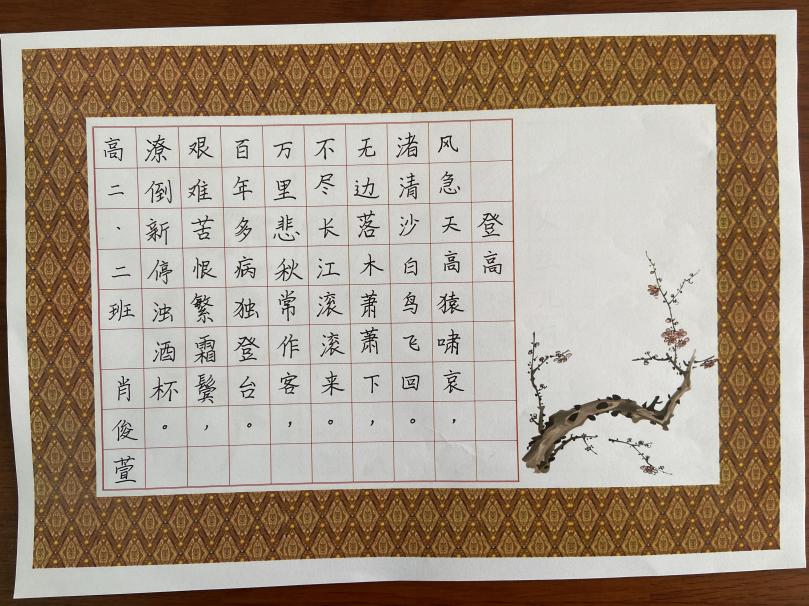 登高
风急天高猿啸哀，
渚清沙白鸟飞回。
无边落木萧萧下，
不尽长江滚滚来。
万里悲秋常作客，
百年多病独登台。
艰难苦恨繁霜鬓，
潦倒新停浊酒杯。
高二、二班 肖俊萱